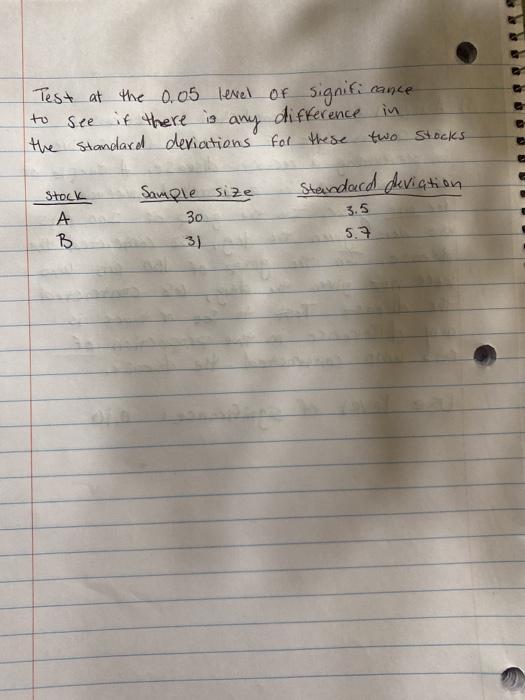 Test at the 0.05 level of signifi cance
to see if there is any difference in
the standard deviations for these two stocks
Stock Sample size Standard deviation
A 30 3.5
B 31 5.7